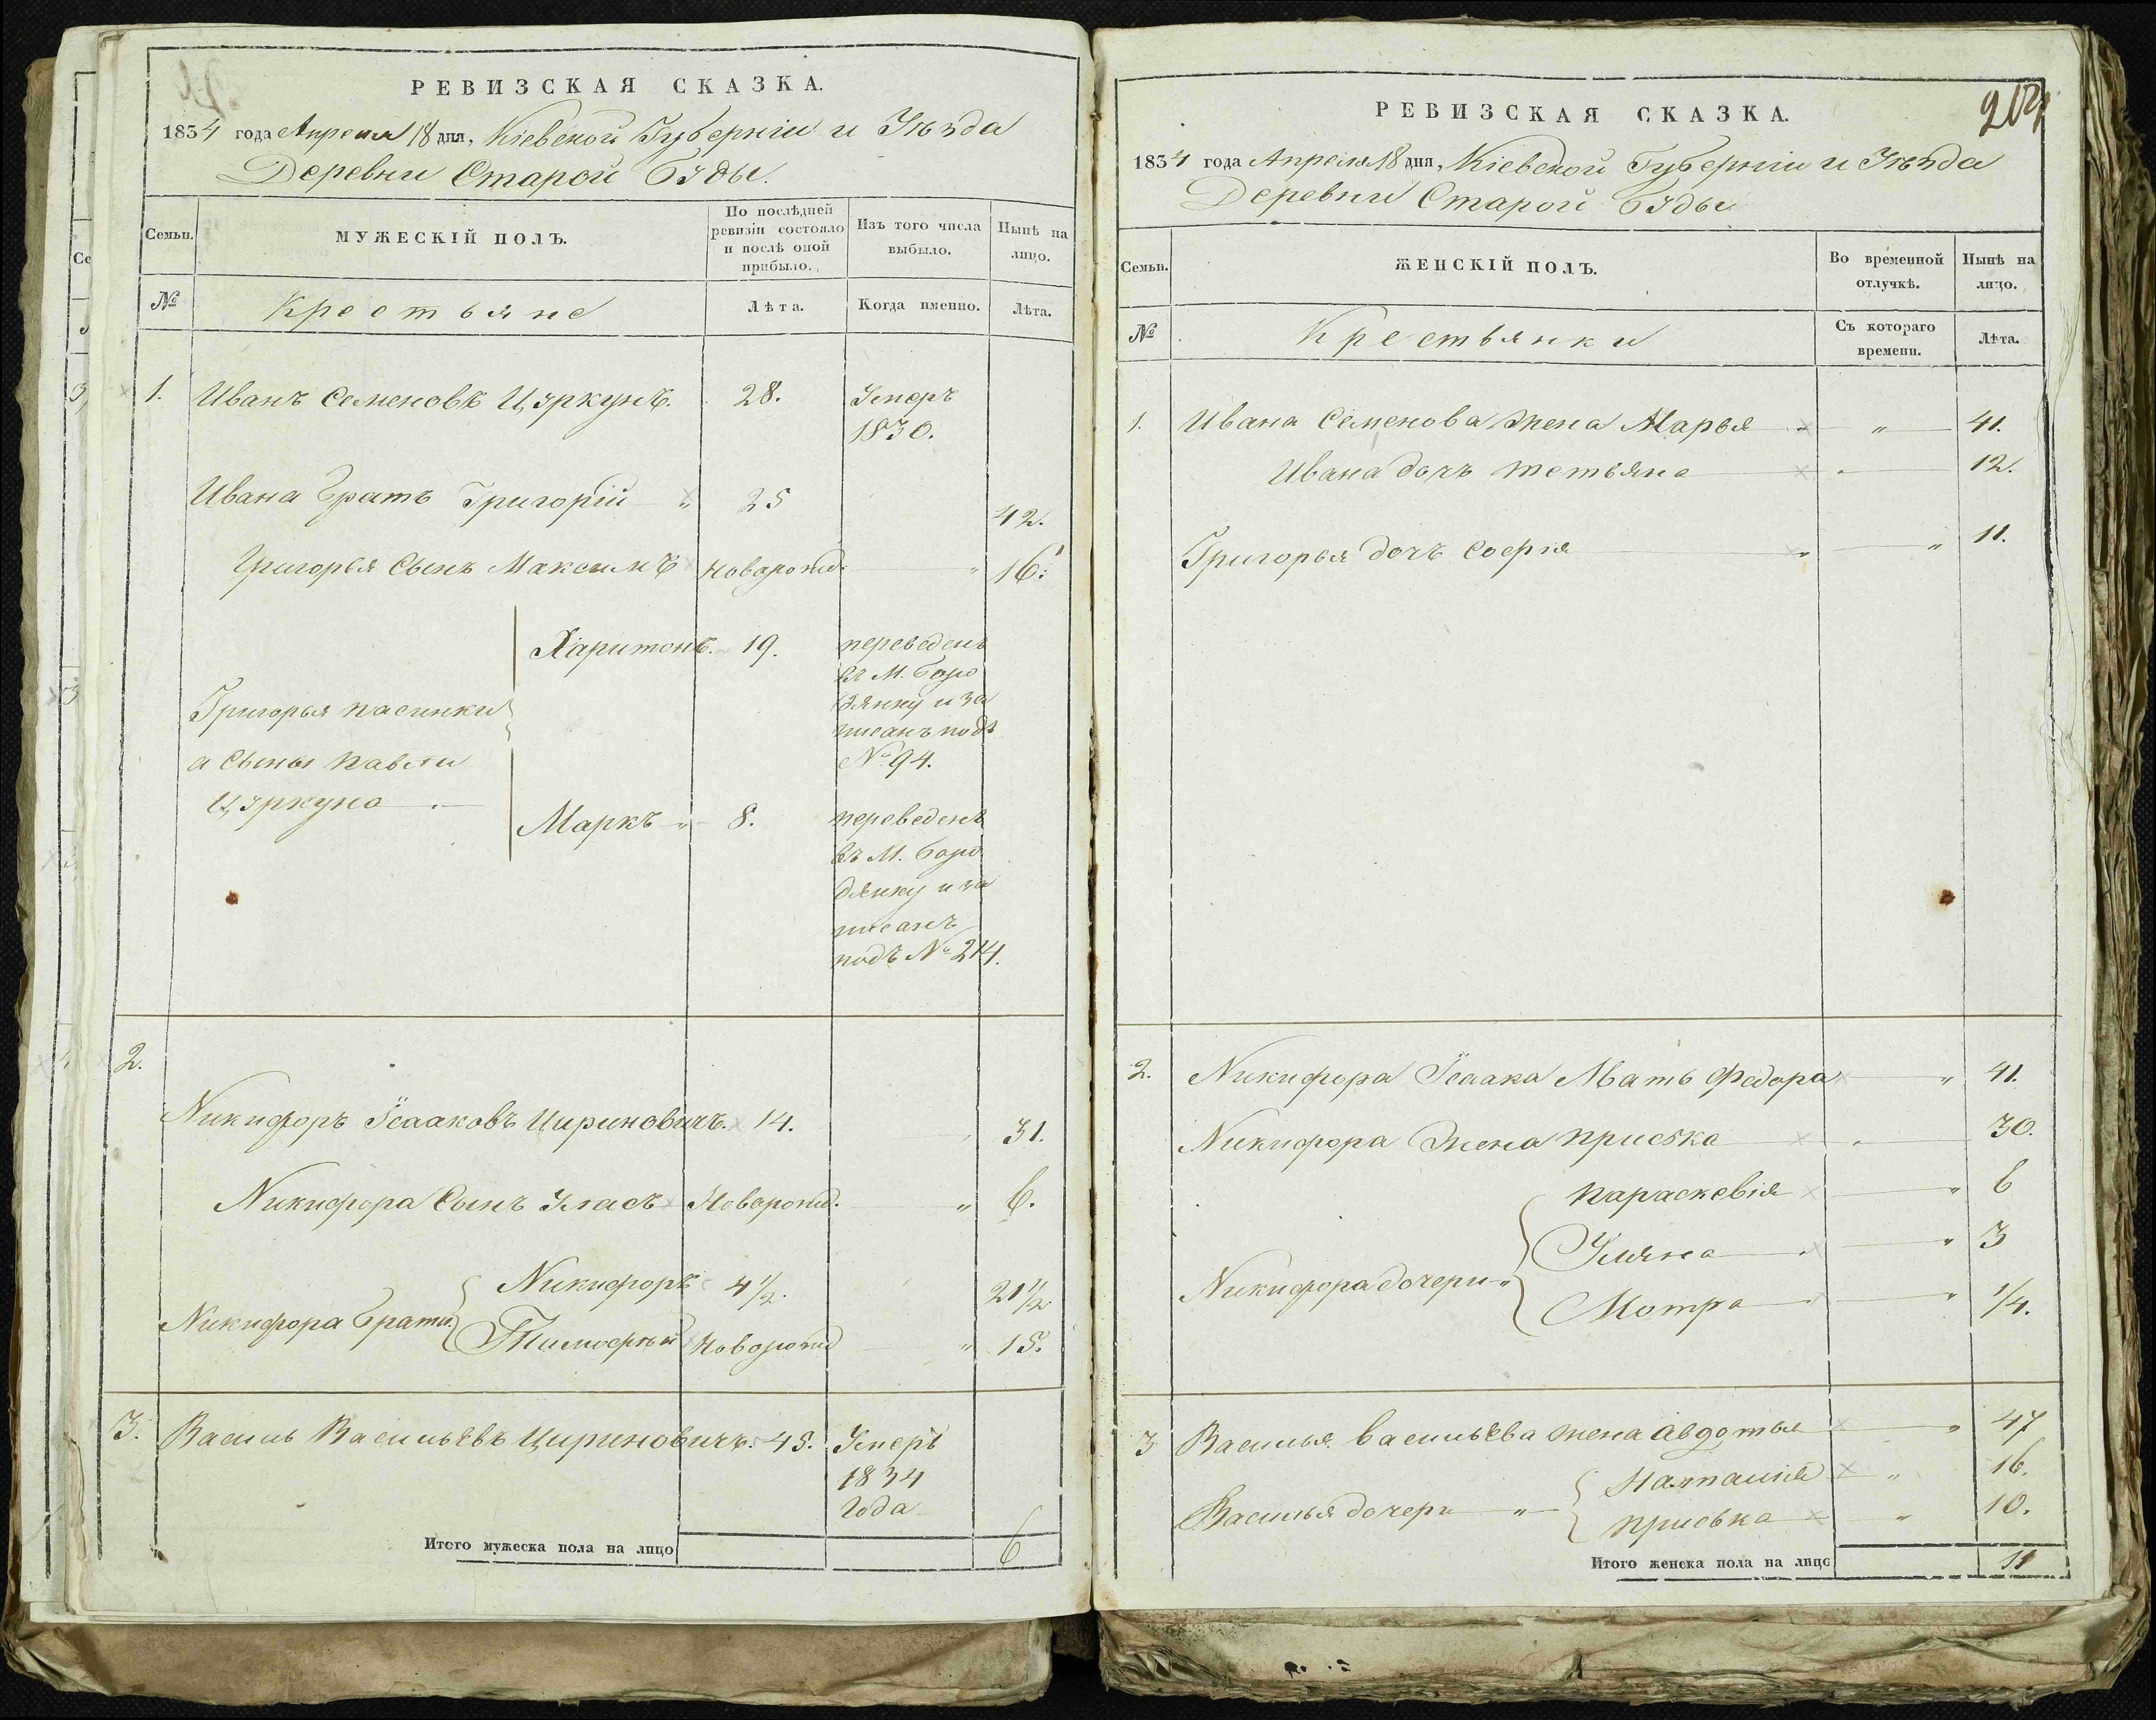 РЕВИЗСКАЯ СКАЗКА.
1834 года Апреля 18 дня, Кіевской Губерніи и Уѣзда
Деревни Старой Буды.
Семьи.
МУЖЕСКІЙ ПОЛЪ.
По послѣдней ревизіи состояло и послѣ оной прибыло.
Изъ того числа выбыло.
Нынѣ на лицо.
№
Крестьяне
Лѣта.
Когда именно.
Лѣта.
1. Иванъ Семеновъ Цуркунъ. 28. Умеръ
1830.
Ивана братъ Григорій " 25 42.
Григорья Сынъ Максимъ Новарожд. " 16.
Харитонъ. 19. переведенъ
въ М. Боро
дянку и за
писанъ подъ
№ 94.
Григорья пасинки
а Сыны Павли
Цуркуна
Маркъ " 8. переведенъ
въ М. Боро
дянку и за
писанъ
подъ № 214.
2.
Никифоръ Ісааковъ Цириновичъ. 14. 31.
Никифора Сынъ Уласъ Новорожд. " 6.
Никифора Браты
Никифоръ 4 1/2. 21 1/2
Тимофѣй Новорожд " 15.
3. Василь Васильевъ Цириновичъ. 45. Умеръ
1834
Года
Итого мужеска пола на лицо 6
204
РЕВИЗСКАЯ СКАЗКА.
1834 года Апреля 18 дня, Кіевской Губерніи и Уѣзда
Деревни Старой Буды
Семьи.
ЖЕНСКІЙ ПОЛЪ.
Во временной отлучкѣ.
Нынѣ на лицо.
№
Крестьянки
Съ котораго времени.
Лѣта.
1. Ивана Семенова жена Марья " 41.
Ивана дочь Тетьяна 12.
Григорья дочь Софія " 11.
2. Никифора Ісаака Мать Федора " 41.
Никифора Жена Приська 30.
Никифора дочери "
Параскевія " 6
Уляна " 3
Мотра " 1/4.
3 Василья Васильева жена Авдотья " 47
Василья дочери "
Наталія " 16.
Приська " 10.
Итого женска пола на лицо 11